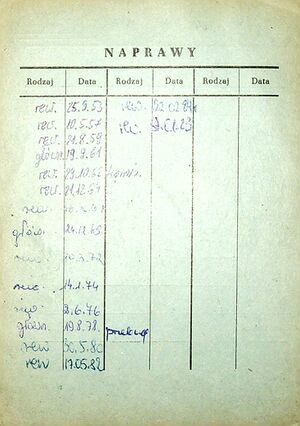 NAPRAWY
Rodzaj Data Rodzaj Data Rodzaj Data
rew. 25.9.53 rew. 02.02.84
rew. 10.5.57 rew.
rew. 21.8.59
główn. 19.9.61
rew. 29.10.62
rew. 21.12.64
rew.
główn. 24.12.65
rew. 10.3.72
rew. 14.1.74
2.6.76
główn. 19.8.78.
rew 30.5.80
rew 17.05.82